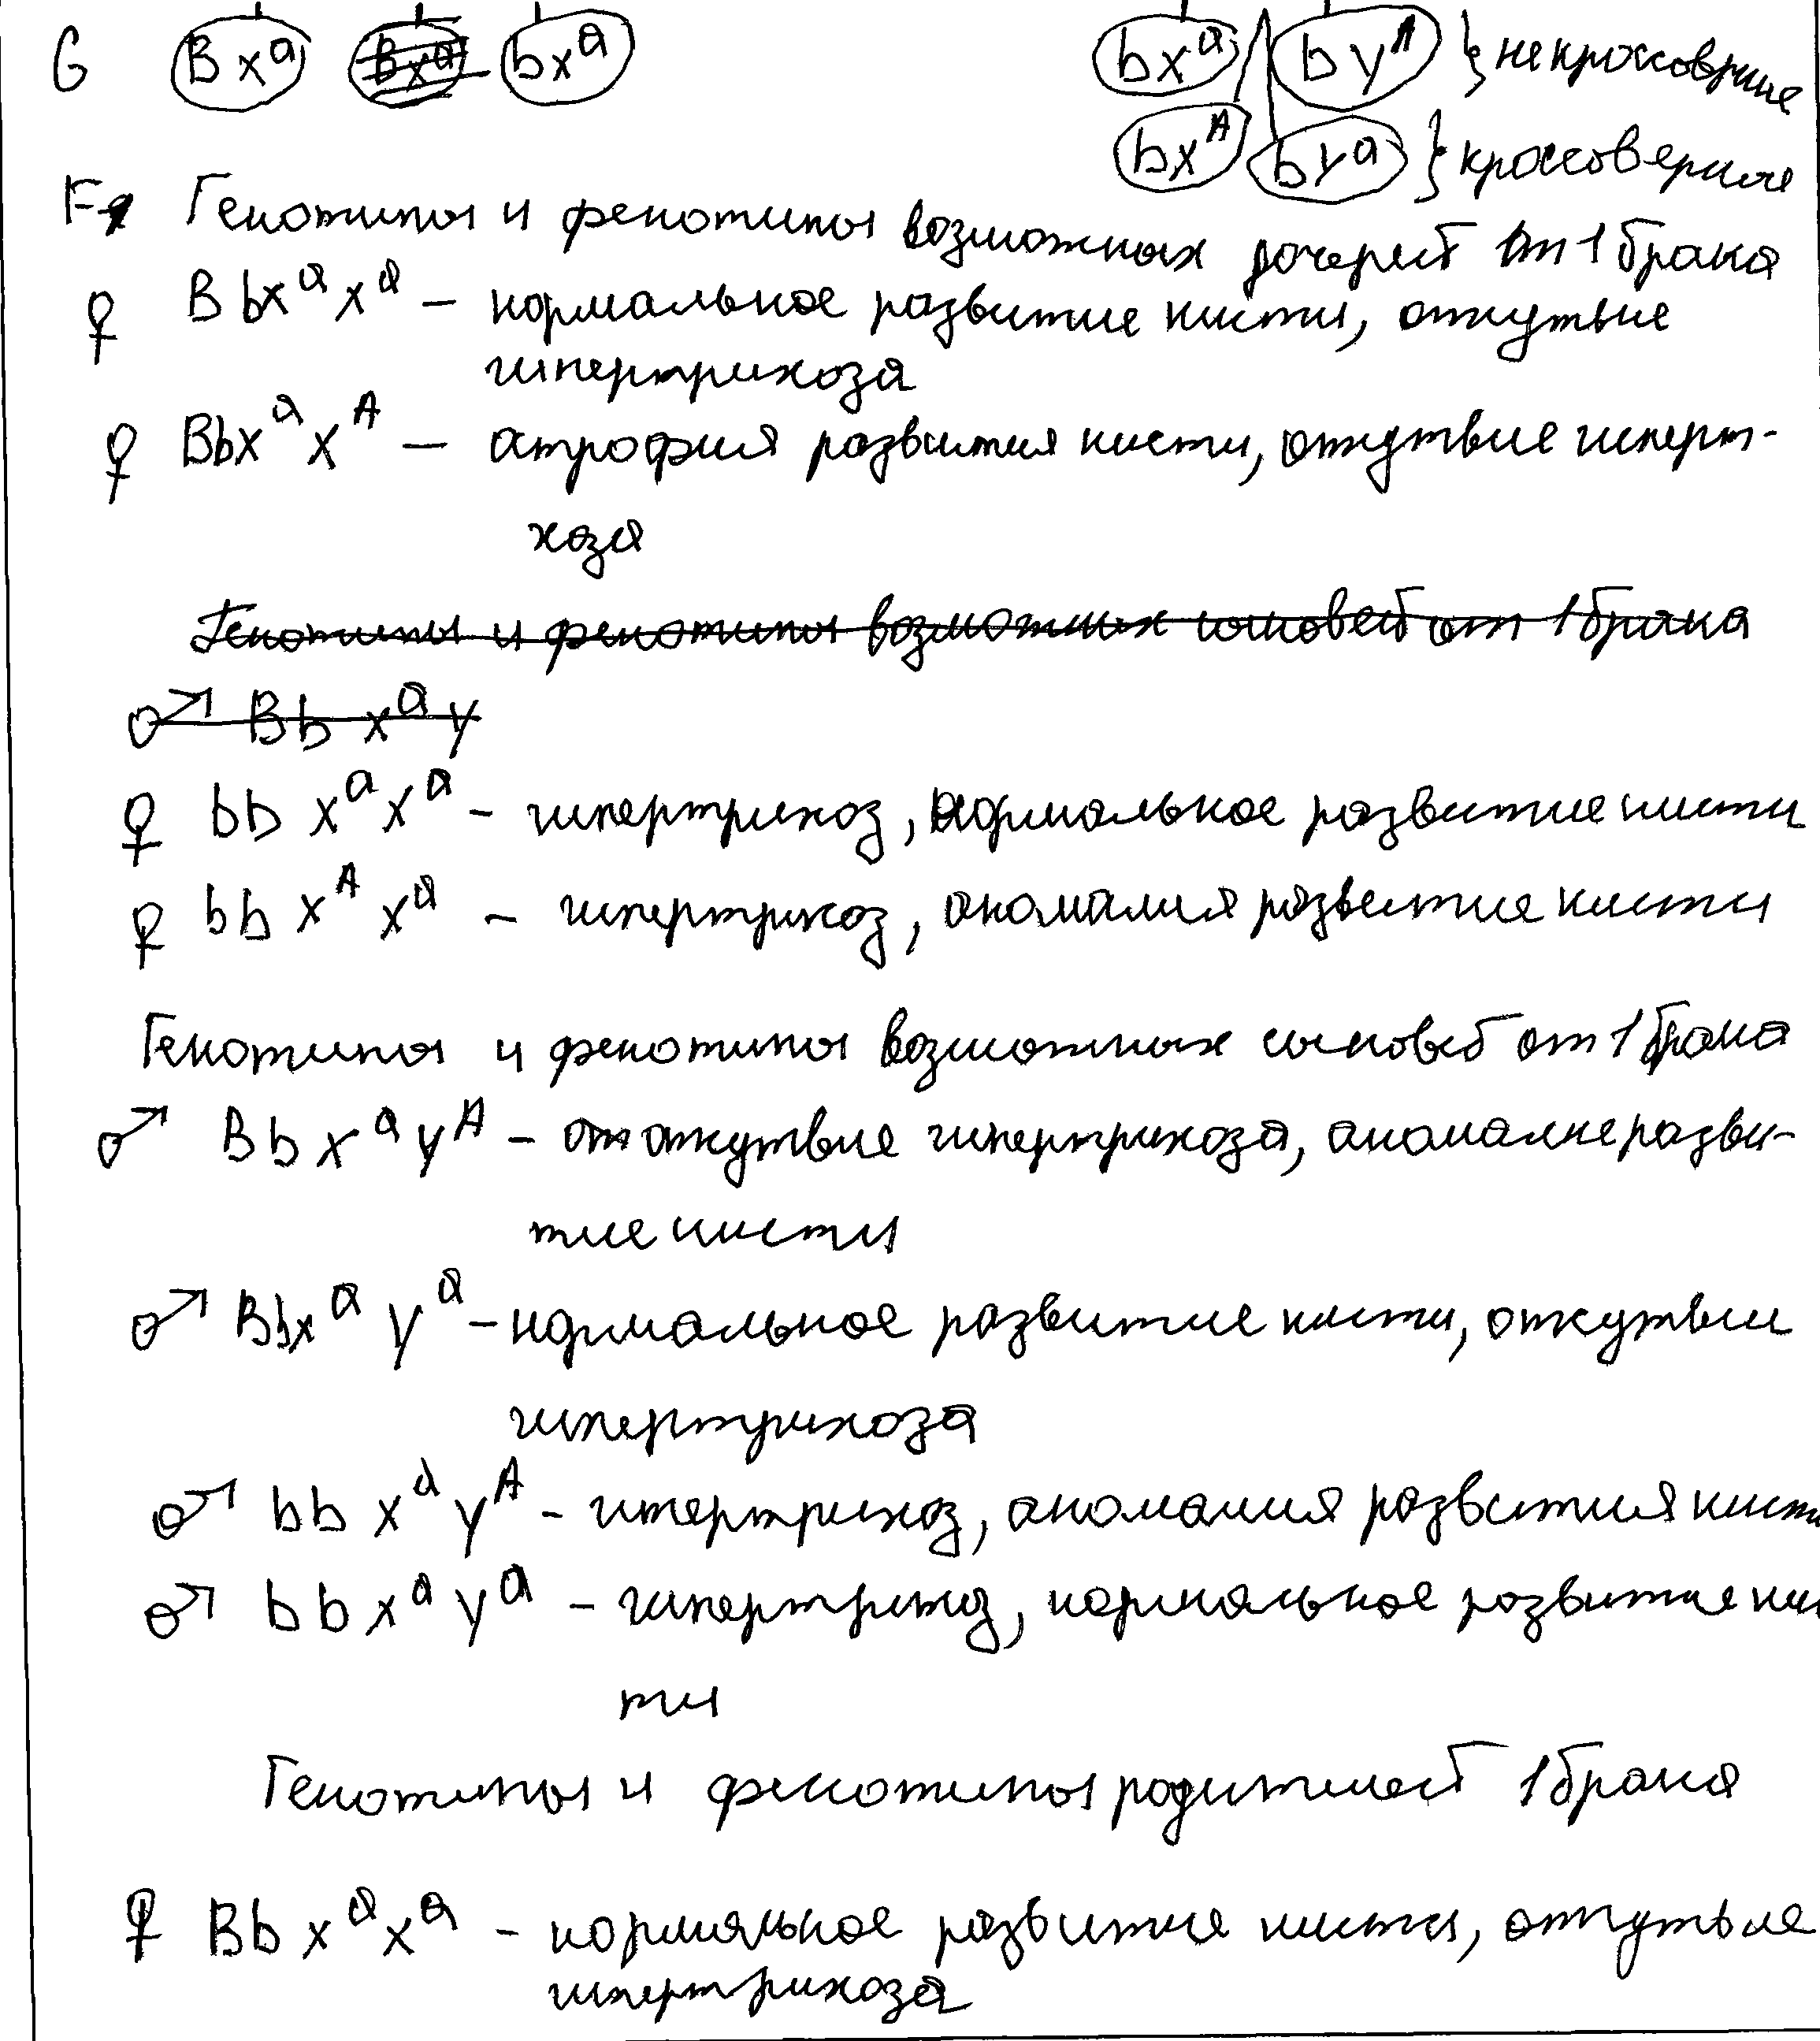 G Bxᵃ Bxᵃ bxᵃ bxᵃ byᴬ } некроссоврные
bxᴬ byᵃ } кроссоверные
F₁ Генотипы и фенотипы возможных дочерей от 1 брака
♀ Bbxᵃxᵃ – нормальное развитие кисти, отсутвие
гипертрихоза
♀ Bbxᵃxᴬ – атрофия развития кисти, отсутвие гиперт-
хоза
Генотипы и фенотипы возможных сыновей от 1 брака
♂ Bb xᵃy
♀ bb xᵃxᵃ – гипертрихоз, нормальное развитие кисти
♀ bb xᴬxᵃ – гипертрихоз, аномалия развитие кисти
Генотипы и фенотипы возможных сыновей от 1 брака
♂ Bb xᵃyᴬ – от откутвие гипертрихоза, аномалие разви-
тие кисти
♂ Bbxᵃ yᵃ – нормальное развитие кисти, отсутвии
гипертрихоза
♂ bb xᵃyᴬ – гипертрихоз, аномалия развития кисти
♂ bb xᵃyᵃ – нормальное развитие кис
ти
Генотипы и фенотипы родителей 1 брака
♀ Bb xᵃxᵃ – нормальное развитие кисти, отсутвие
гипертрихоза